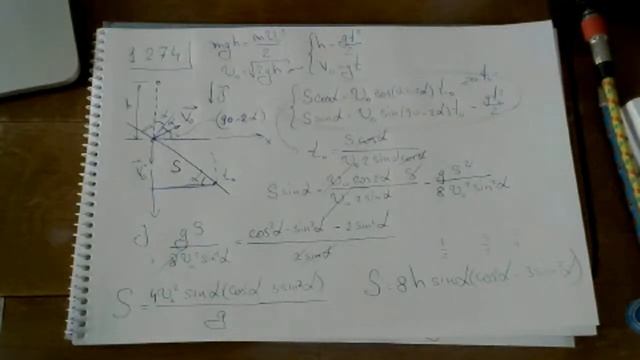 1 274
mgh = mv²/2
v₀ = √2gh
{ h = gt²/2
V₀ = gt
h
V₀
g
(90-2α)
x
{ S cosα = v₀ cos(90-2α) t₀
S sinα = v₀ sin(90-2α) t₀ - gt²/2
t₀ = S cosα / v₀ 2 sinα cosα
S
α
t₀
S sinα = v₀ cos2α S / v₀ 2 sinα - g S² / 8 v₀² sin²α
g S / 8 v₀² sin²α = cos²α - sin²α - 2 sin²α / 2 sinα
S = 4v₀² sinα (cos²α 3 sin²α) / g
S = 8h sinα (cos²α - 3 sin²α)